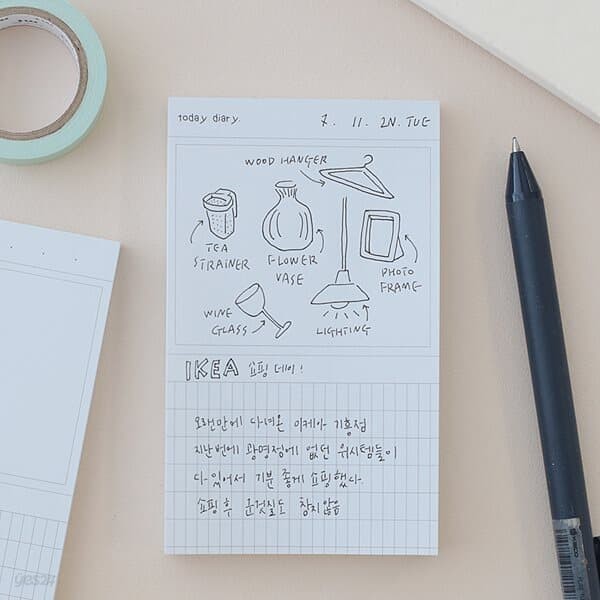 today diary.
7. 11. TUE
WOOD HANGER
TEA
STRAINER
FLOWER
VASE
PHOTO
FRAME
WINE
GLASS
LIGHTING
IKEA 쇼핑 데이!
오랜만에 다녀온 이케아 기흥점
지난번에 광명점에 없던 위시템들이
다 있어서 기분 좋게 쇼핑했다
쇼핑 후 운것질도 참지않음
yes24